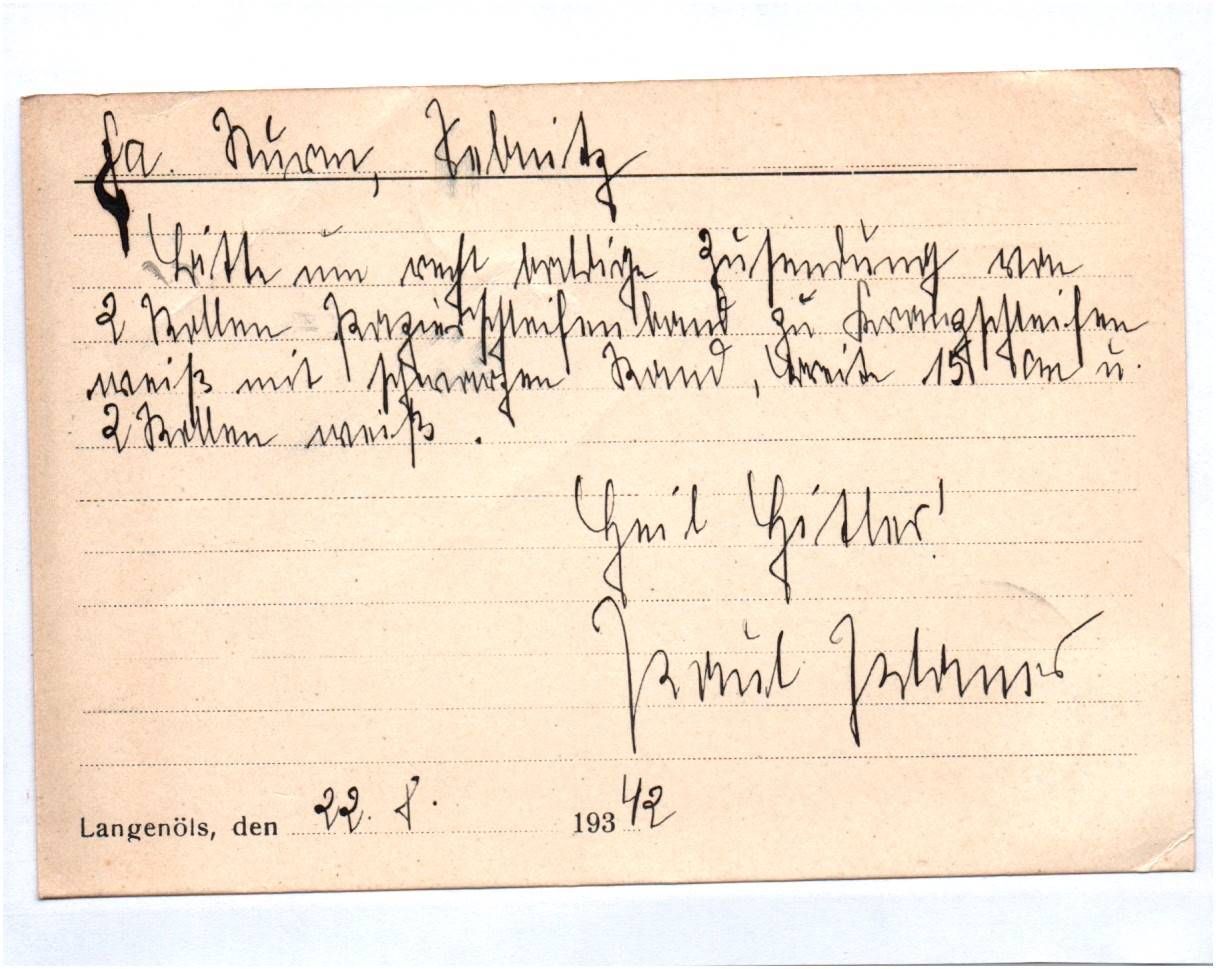 Fa. Sturm, Sebnitz
Bitte um recht baldige Zusendung von
2 Rollen Papierschleifenband zu Kranzschleifen
weiß mit schwarzen Rand, Breite 15 cm u.
2 Rollen weiß.
Heil Hitler!
Paul
Langenöls, den 22. 8. 193 42